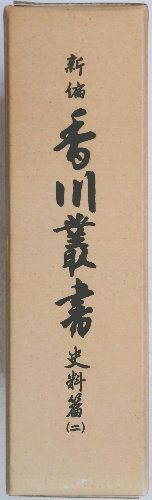 新编香川叢書史料篇(二)